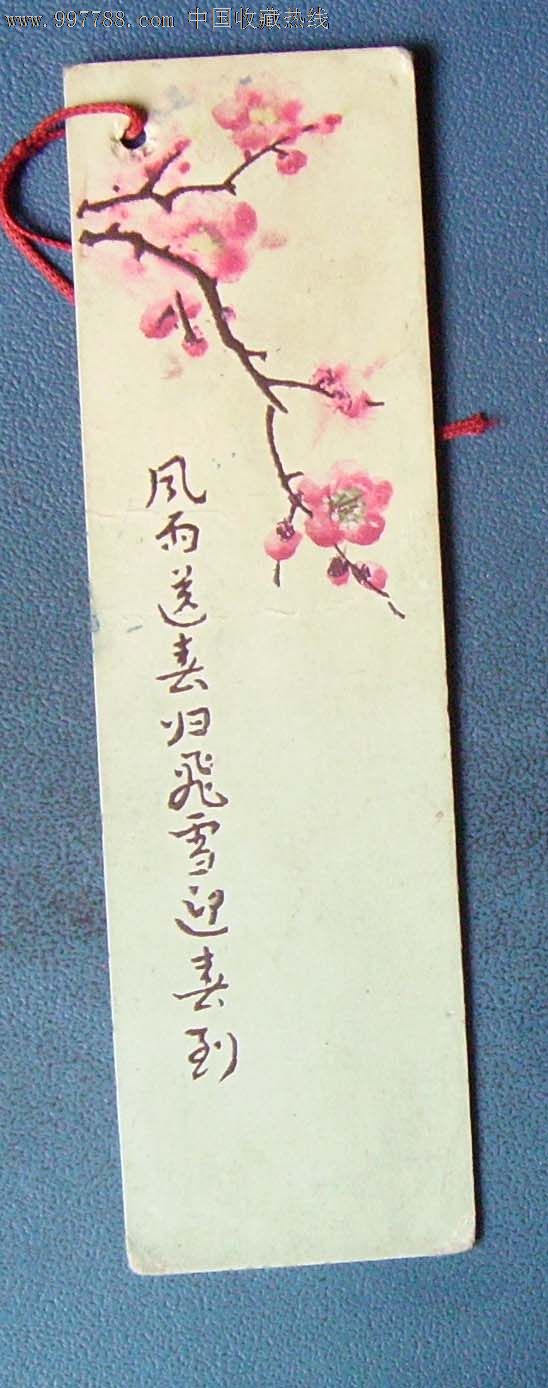 www.997788.com 中国收藏热线
风雨送春归飞雪迎春到